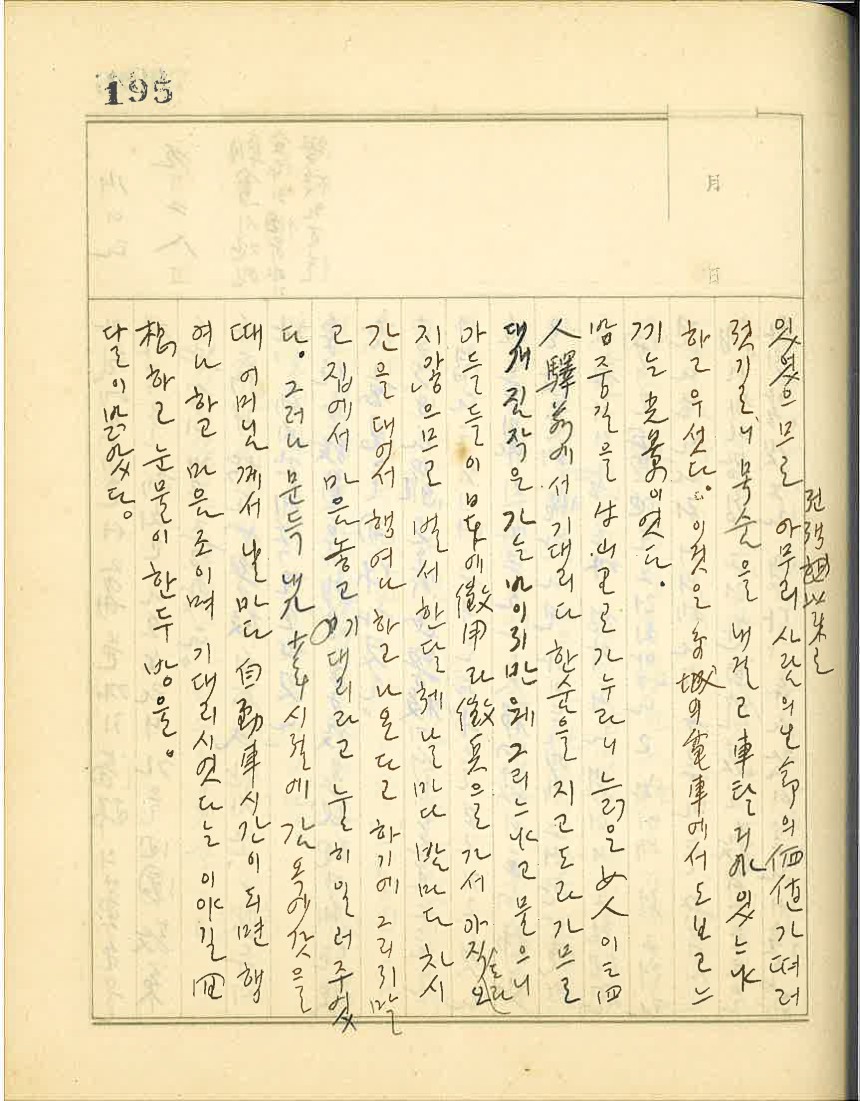 195
月
日
전쟁 以来로
있었으므로 아무리 사람의 生命의 価値가 떠러
젓기로니 목숨을 내걸고 車탈 리 있느냐
하고 우섯다. 이것은 京城의 電車에서도 보고 느
끼는 光景이엿다.
밤중길을 山里로 가누라니 늙은 女人이 三四
人 驛前에서 기대리다 한숨을 지고 도라가므로
대개 짐작은 가는 바이지만 웨 그리느냐고 물으니
아들들이 日本에 徵用과 徵兵으로 가서 아직 도라오
지 않으므로 벌서 한달 체 날마다 밤마다 차시
간을 대여서 행여나 하고 나온다고 하기에 그리 말
고 집에서 마음놓고 기대리라고 눌히 일러주엇
다. 그러나 문득 내가 시절에 감옥에 갓을
때 어머님께서 날마다 自動車 시간이 되면 행
여나 하고 마음 조이며 기대리시엿다는 이야길 回
想하고 눈물이 한두 방울.
달이 밝앗다.